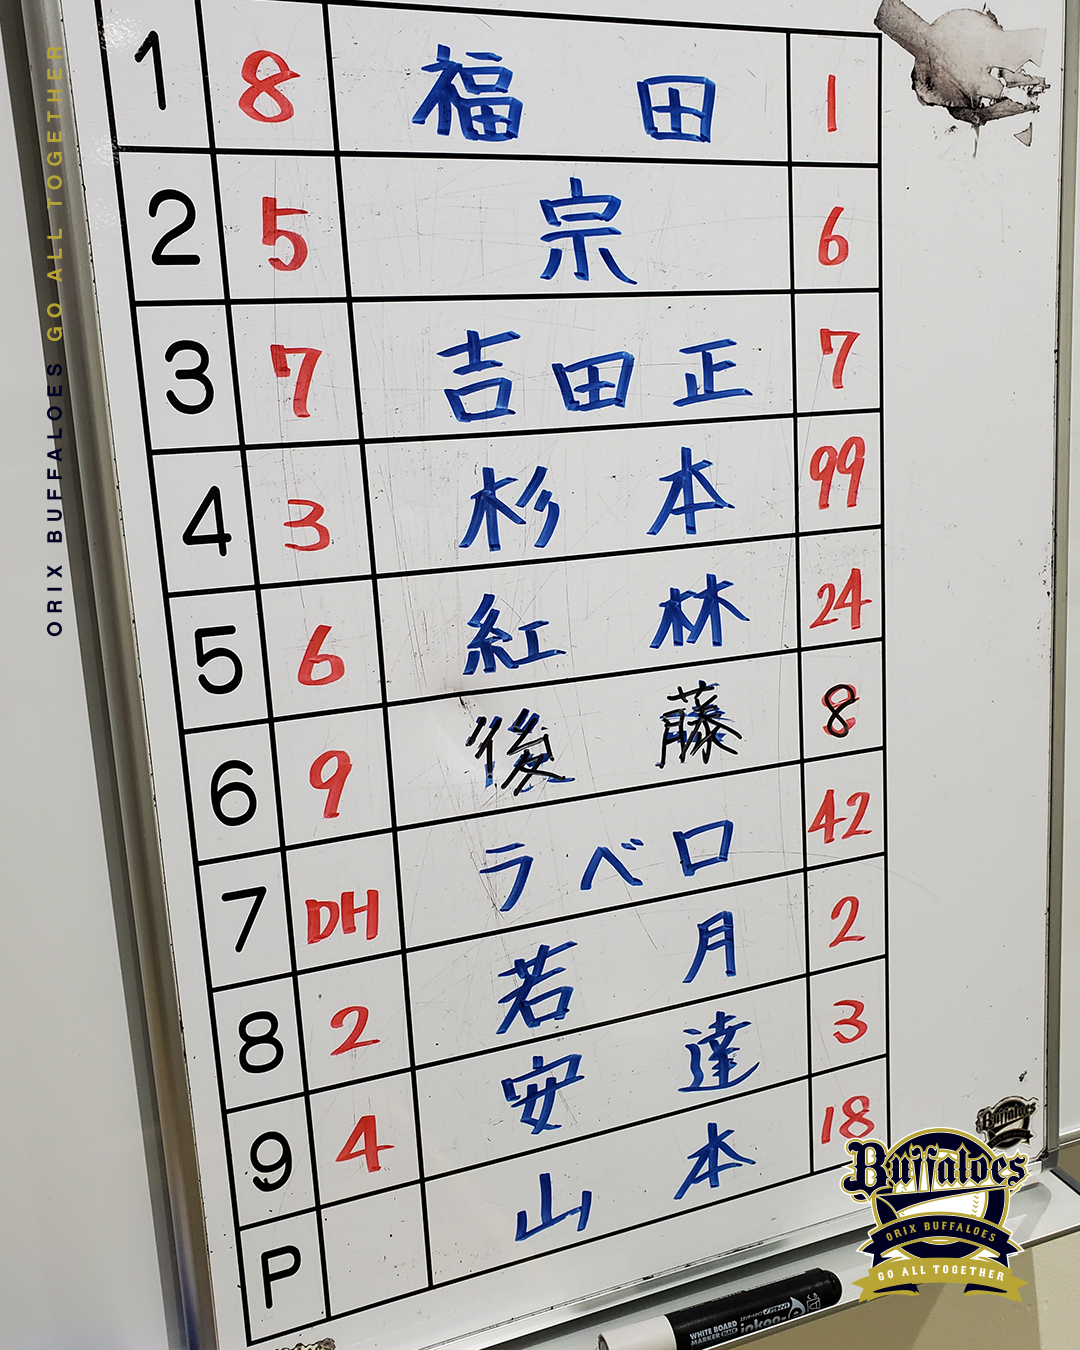 1 8 福田 1
2 5 宗 6
3 7 吉田正 7
4 3 杉本 99
5 6 紅林 24
6 9 後藤 8
7 DH ラベロ 42
8 2 若月 2
9 4 安達 3
P 山本 18
ORIX BUFFALOES GO ALL TOGETHER
Buffaloes
Buffaloes
ORIX BUFFALOES
GO ALL TOGETHER
WHITE BOARD
MARKER